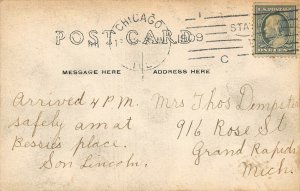 CHICAGO
1909
STA
C
POST CARD
ONE CENT
MESSAGE HERE
ADDRESS HERE
Arrived 4 P.M.
safely am at
place.
Son Lincoln.
Mrs Thos Dempster
916 Rose St
Grand Rapids
Mich.